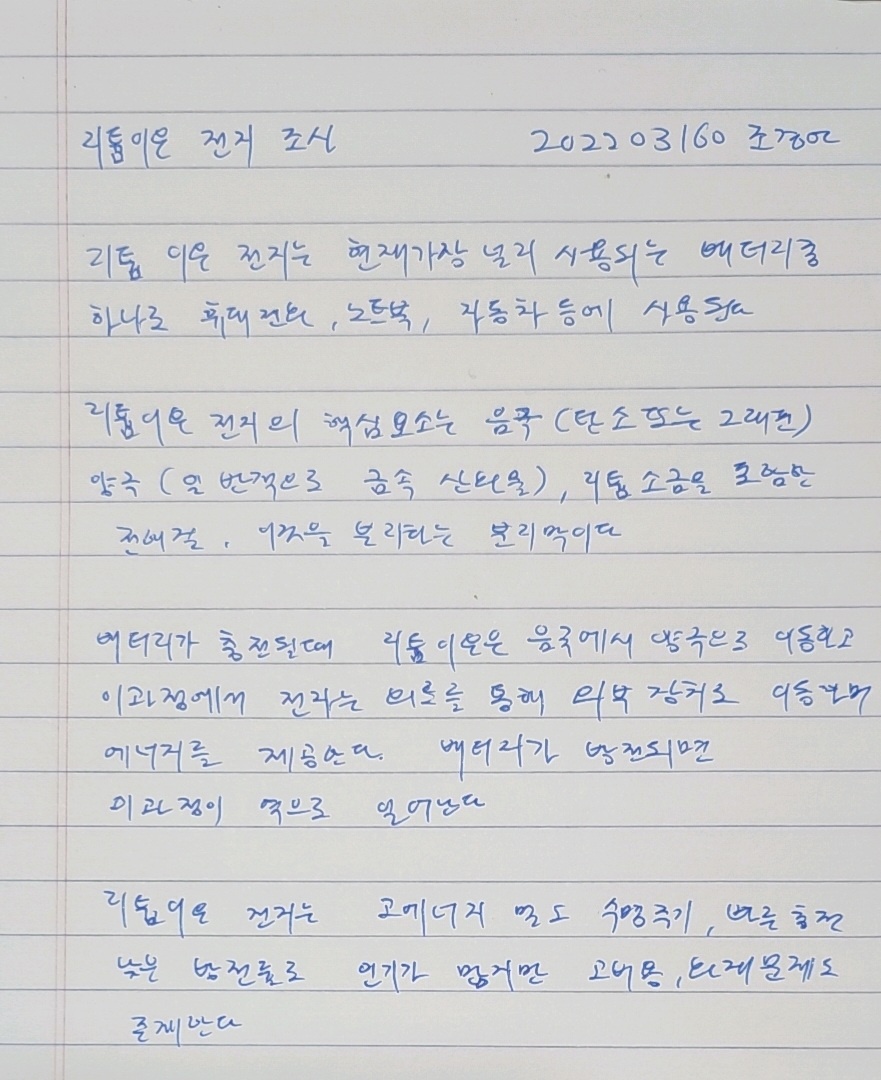 리튬이온 전지 조사 202203160 조경민
리튬 이온 전지는 현재가장 널리 사용되는 배터리중
하나로 휴대전화, 노트북, 자동차 등에 사용된다
리튬이온 전지의 핵심요소는 음극 (탄소 또는 그래핀)
양극 (일반적으로 금속 산화물), 리튬소금을 포함한
전해질, 이것을 분리하는 분리막이다
배터리가 충전될때 리튬이온은 음극에서 양극으로 이동하고
이과정에서 전자는 회로를 통해 외부 장치로 이동하며
에너지를 제공한다. 배터리가 방전되면
이과정이 역으로 일어난다
리튬이온 전지는 고에너지 밀도 수명주기, 빠른충전
낮은 방전률로 인기가 많지만 고비용, 화재문제도
존재한다